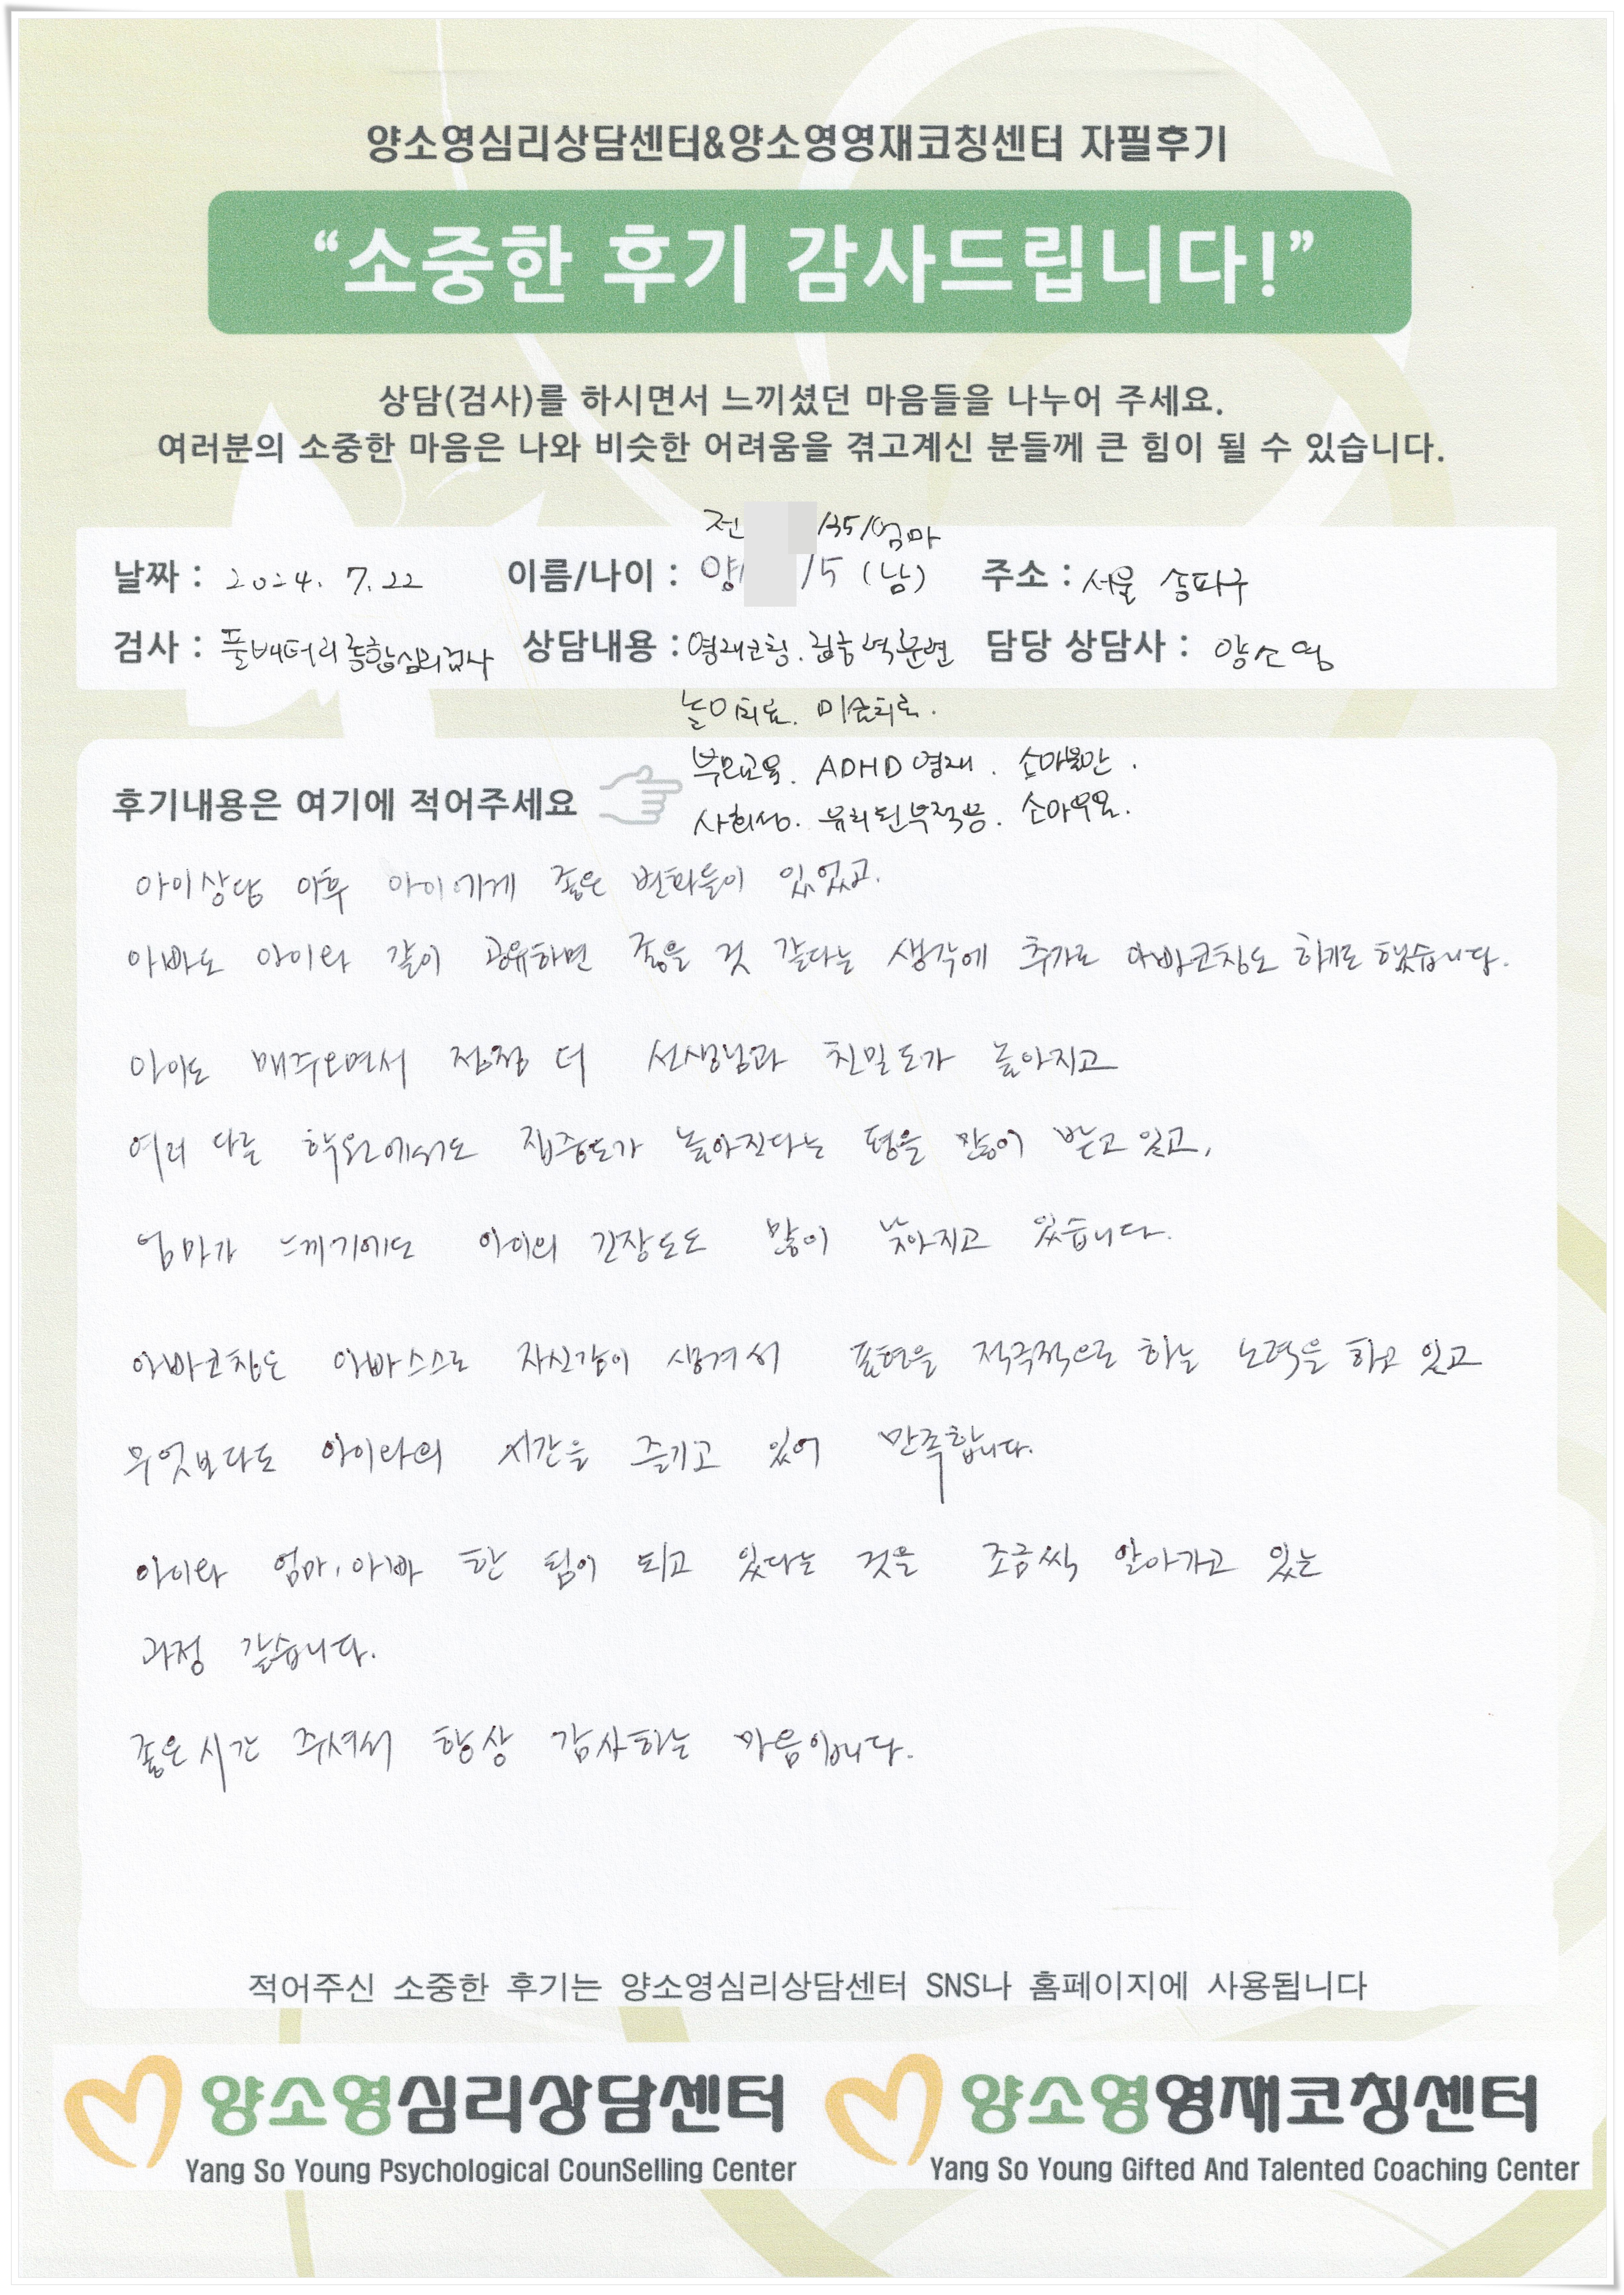 양소영심리상담센터&양소영영재코칭센터 자필후기
“소중한 후기 감사드립니다!”
상담(검사)를 하시면서 느끼셨던 마음들을 나누어 주세요.
여러분의 소중한 마음은 나와 비슷한 어려움을 겪고계신 분들께 큰 힘이 될 수 있습니다.
전 /35/엄마
날짜 : 2024. 7.22 이름/나이 : 양 /5 (남) 주소 : 서울 송파구
검사 : 풀배터리종합심리검사 상담내용 : 영재코칭. 담당 상담사 : 양소영
놀이치료. 미술치료.
부모교육. ADHD영재. 소아불안.
후기내용은 여기에 적어주세요
사회성. 유리된부적응. 소아우울.
아이상담 이후 아이에게 좋은 변화들이 있었고.
아빠도 아이와 같이 공유하면 좋을 것 같다는 생각에 추가로 아빠코칭도 하기로 했습니다.
아이도 매주오면서 점점 더 선생님과 친밀도가 높아지고
여러 다른 학원에서도 집중도가 높아진다는 평을 많이 받고 있고,
엄마가 느끼기에도 아이의 긴장도도 많이 낮아지고 있습니다.
아빠코칭도 아빠스스로 자신감이 생겨서 표현을 적극적으로 하는 노력을 하고 있고
무엇보다도 아이와의 시간을 즐기고 있어 만족합니다.
아이와 엄마, 아빠 한 팀이 되고 있다는 것을 조금씩 알아가고 있는
과정 같습니다.
좋은시간 주셔서 항상 감사하는 마음입니다.
적어주신 소중한 후기는 양소영심리상담센터 SNS나 홈페이지에 사용됩니다
양소영심리상담센터 양소영영재코칭센터
Yang So Young Psychological CounSelling Center Yang So Young Gifted And Talented Coaching Center